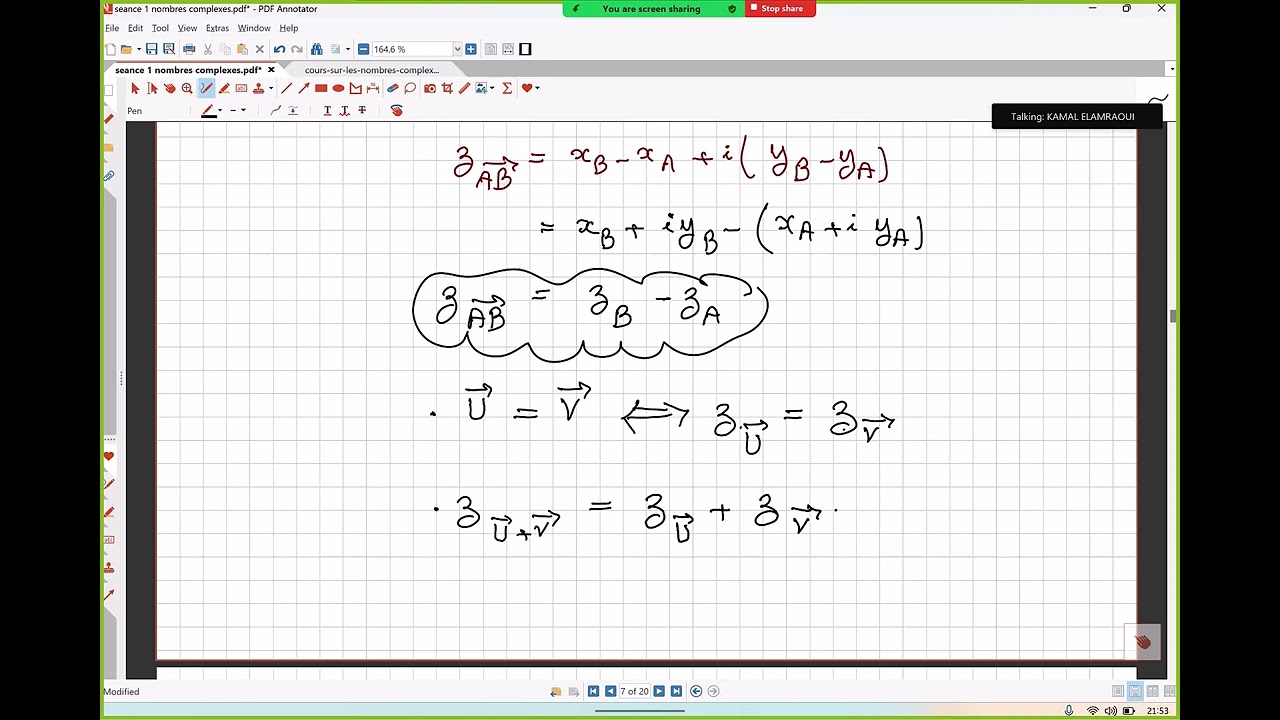 seance 1 nombres complexes.pdf* - PDF Annotator
You are screen sharing
Stop share
File Edit Tool View Extras Window Help
164.6 %
seance 1 nombres complexes.pdf*
cours-sur-les-nombres-complex...
Pen
Talking: KAMAL ELAMRAOUI
z_{\overrightarrow{AB}} = x_B - x_A + i( y_B - y_A)
= x_B + i y_B - (x_A + i y_A)
z_{\overrightarrow{AB}} = z_B - z_A
. \overrightarrow{U} = \overrightarrow{V} ⟺ z_{\overrightarrow{U}} = z_{\overrightarrow{V}}
. z_{\overrightarrow{U} + \overrightarrow{V}} = z_{\overrightarrow{U}} + z_{\overrightarrow{V}} .
Modified
7 of 20
21:53